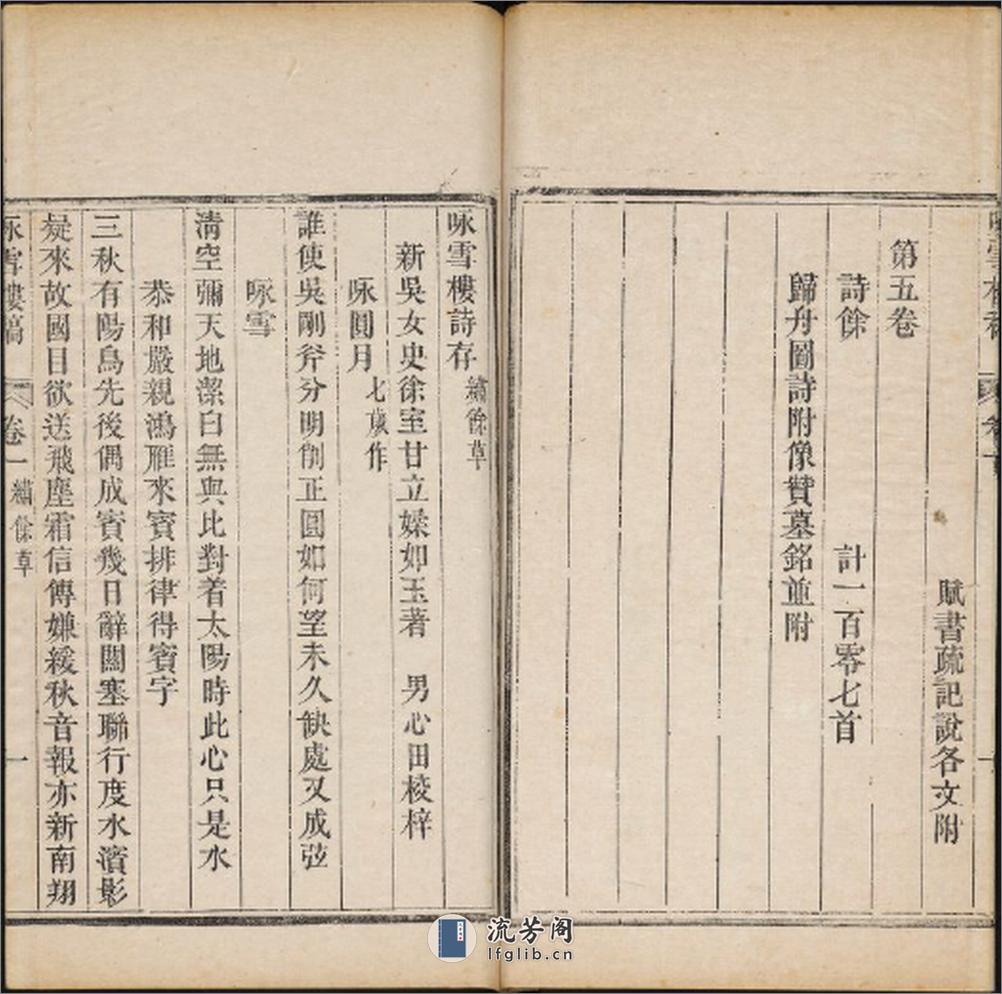 賦書疏記說各文附
第五卷
詩餘 計一百零七首
歸舟圖詩附像贊墓銘並附
咏雪樓詩存 繡餘草
新吳女史徐室甘立媃如玉著 男心田校梓
咏圓月 七歲作
誰使吳剛斧分明削正圓如何望未久缺處又成弦
咏雪
清空彌天地潔白無與比對着太陽時此心只是水
恭和嚴親鴻雁來賓排律得賓字
三秋有陽鳥先後偶成賓幾日辭關塞聯行度水濱影
疑來故國目欲送飛塵霜信傳嫌緩秋音報亦新南翔
咏雪樓稿 卷一 繡餘草 一
流芳阁
lfglib.cn